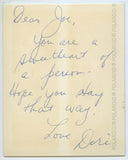 Dear Joe,
You are a
sweetheart of
a person.
Hope you stay
that way.
Love